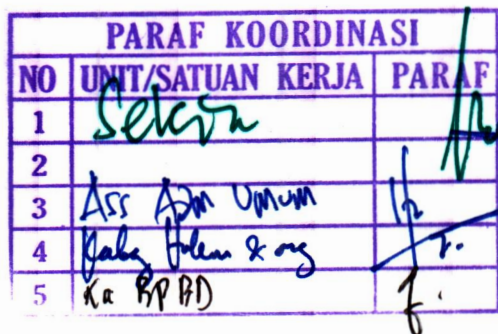 PARAF KOORDINASI
NO UNIT/SATUAN KERJA PARAF
1 Sekda
2
3 Ass Adm Umum
4 Kabag Hukum & org
5 Ka BPBD